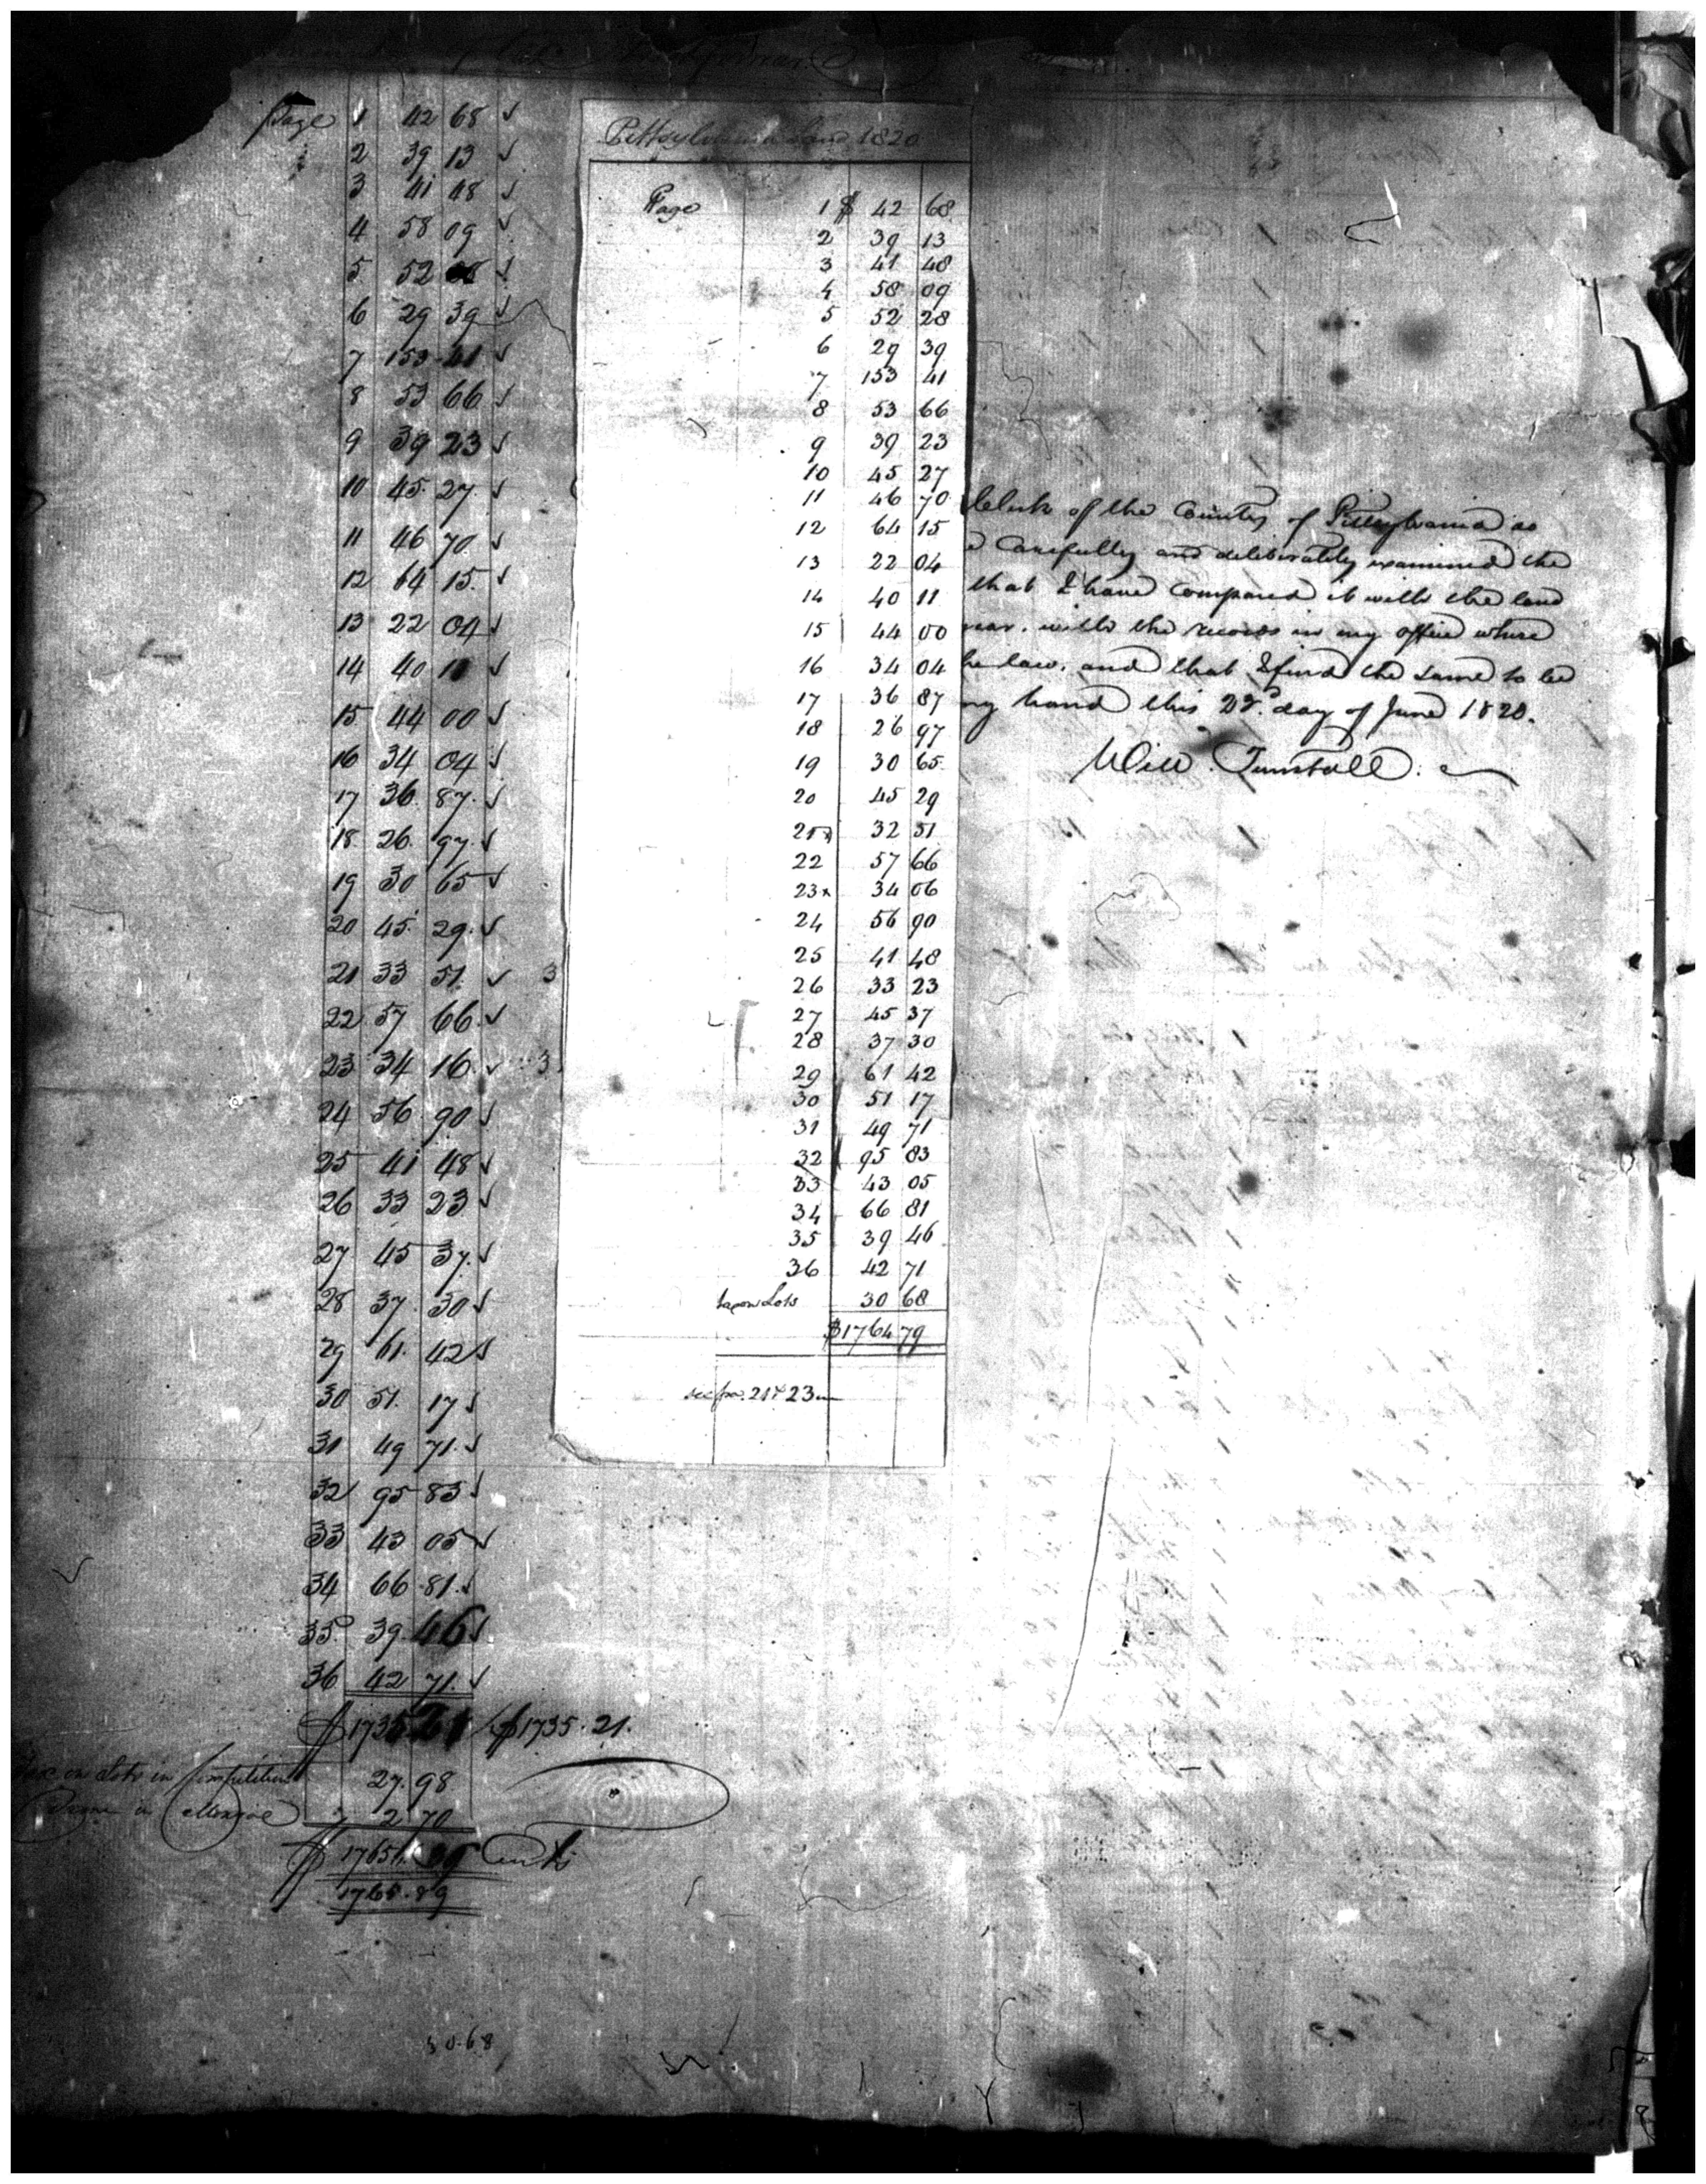 Page 1 42 68 ✓
2 39 13 ✓
3 41 48 ✓
4 58 09 ✓
5 52 ✓
6 29 39 ✓
7 153 41 ✓
8 53 66 ✓
9 39 23 ✓
10 45 27 ✓
11 46 70 ✓
12 64 15 ✓
13 22 04 ✓
14 40 11 ✓
15 44 00 ✓
16 34 04 ✓
17 36 87 ✓
18 26 97 ✓
19 30 65 ✓
20 45 29 ✓
21 33 51 ✓ 3
22 57 66 ✓
23 34 16 ✓ 3
24 56 90 ✓
25 41 48 ✓
26 33 23 ✓
27 45 37 ✓
28 37 30 ✓
29 61 42 ✓
30 51 17 ✓
31 49 71 ✓
32 95 83 ✓
33 43 05 ✓
34 66 81 ✓
35 39 46 ✓
36 42 71 ✓
$1735 21 $1735.21.
Tax on Lots in Competition 27.98
Same in 2 70
$ Cents
30.68
Pittsylvania Land 1820
Page 1 $ 42 68
2 39 13
3 41 48
4 58 09
5 52 28
6 29 39
7 153 41
8 53 66
9 39 23
10 45 27
11 46 70
12 64 15
13 22 04
14 40 11
15 44 00
16 34 04
17 36 87
18 26 97
19 30 65
20 45 29
21x 32 51
22 57 66
23x 34 06
24 56 90
25 41 48
26 33 23
27 45 37
28 37 30
29 61 42
30 51 17
31 49 71
32 95 83
33 43 05
34 66 81
35 39 46
36 42 71
Lots 30 68
$1764 79
see pa. 21 & 23
Clerk of the County of Pittsylvania do
Carefully and deliberately examined the
that I have Compared it with the land
year. with the records in my office where
the law, and that I find the same to be
my hand this 22d. day of June 1820.
Will Tunstall.